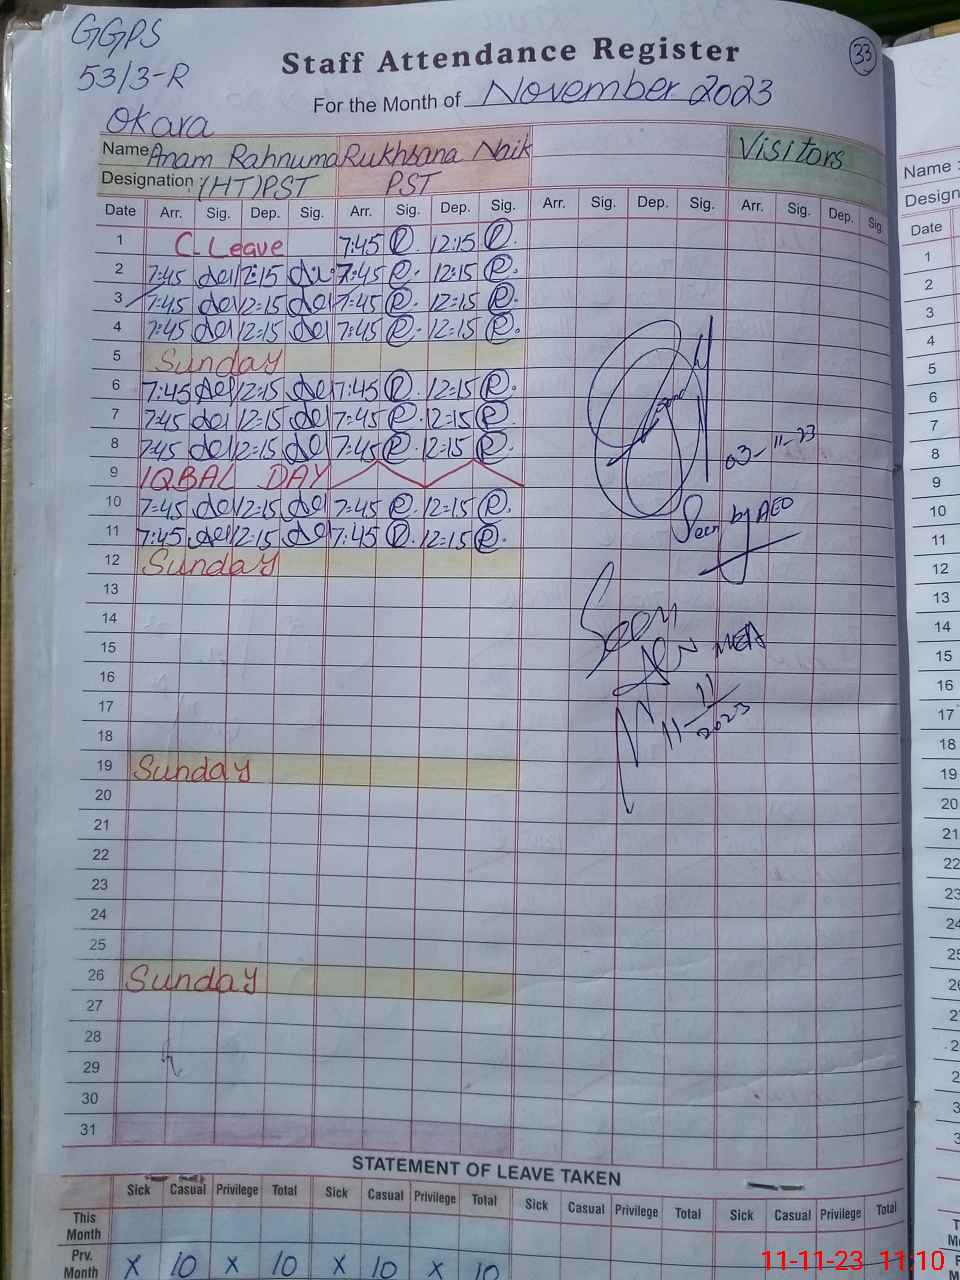 GGPS
53/3-R
Okara
Staff Attendance Register
33
For the Month of November 2023
Name Anam Rahnuma Rukhsana Naik Visitors
Designation : (HT)PST PST
Date Arr. Sig. Dep. Sig. Arr. Sig. Dep. Sig. Arr. Sig. Dep. Sig. Arr. Sig. Dep. Sig.
1 C. Leave 7:45 R. 12:15 R.
2 7:45 12:15 7:45 R. 12:15 R.
3 7:45 12:15 7:45 R. 12:15 R.
4 7:45 12:15 7:45 R. 12:15 R.
5 Sunday
6 7:45 12:15 7:45 R. 12:15 R.
7 7:45 12:15 7:45 R. 12:15 R.
8 7:45 12:15 7:45 R. 12:15 R.
03-11-23
9 IQBAL DAY
10 7:45 12:15 7:45 R. 12:15 R.
Seen by AEO
11 7:45 12:15 7:45 R. 12:15 R.
12 Sunday
13
14
Seen
15
MEA
16
17
11-11
2023
18
19 Sunday
20
21
22
23
24
25
26 Sunday
27
28
29
30
31
STATEMENT OF LEAVE TAKEN
Sick Casual Privilege Total Sick Casual Privilege Total Sick Casual Privilege Total Sick Casual Privilege Total
This
Month
Prv.
Month x 10 x 10 x 10 x 10
Name :
Design
Date
1
2
3
4
5
6
7
8
9
10
11
12
13
14
15
16
17
18
19
20
21
22
23
24
11-11-23 11:10